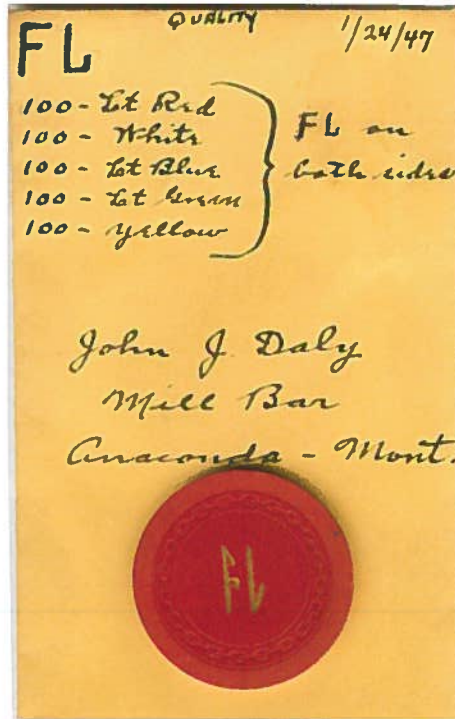 QUALITY 1/24/47
FL
100 - Lt Red
100 - White
100 - Lt Blue
100 - Lt Green
100 - Yellow
FL on
both sides
John J. Daly
Mill Bar
Anaconda - Mont.
FL